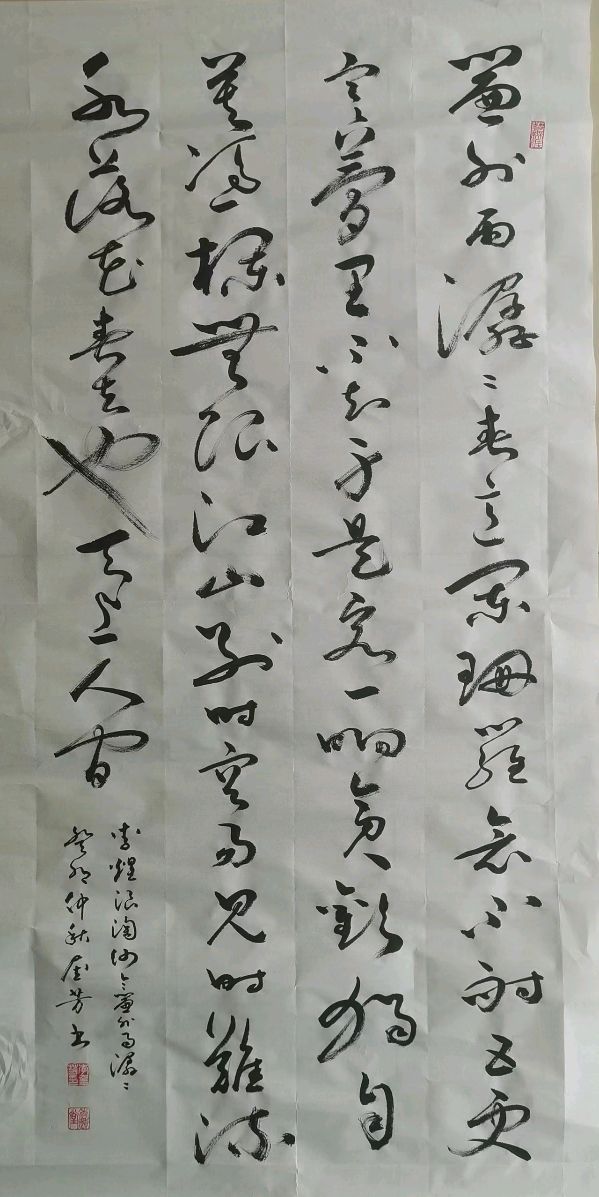 簾外雨潺〻春意闌珊羅衾不耐五更
寒夢里不知身是客一晌貪歡獨自
莫憑欄無限江山別時容易見時難流
水落花春去也天上人間
李煜浪淘沙令簾外雨潺〻
癸卯仲秋芳书